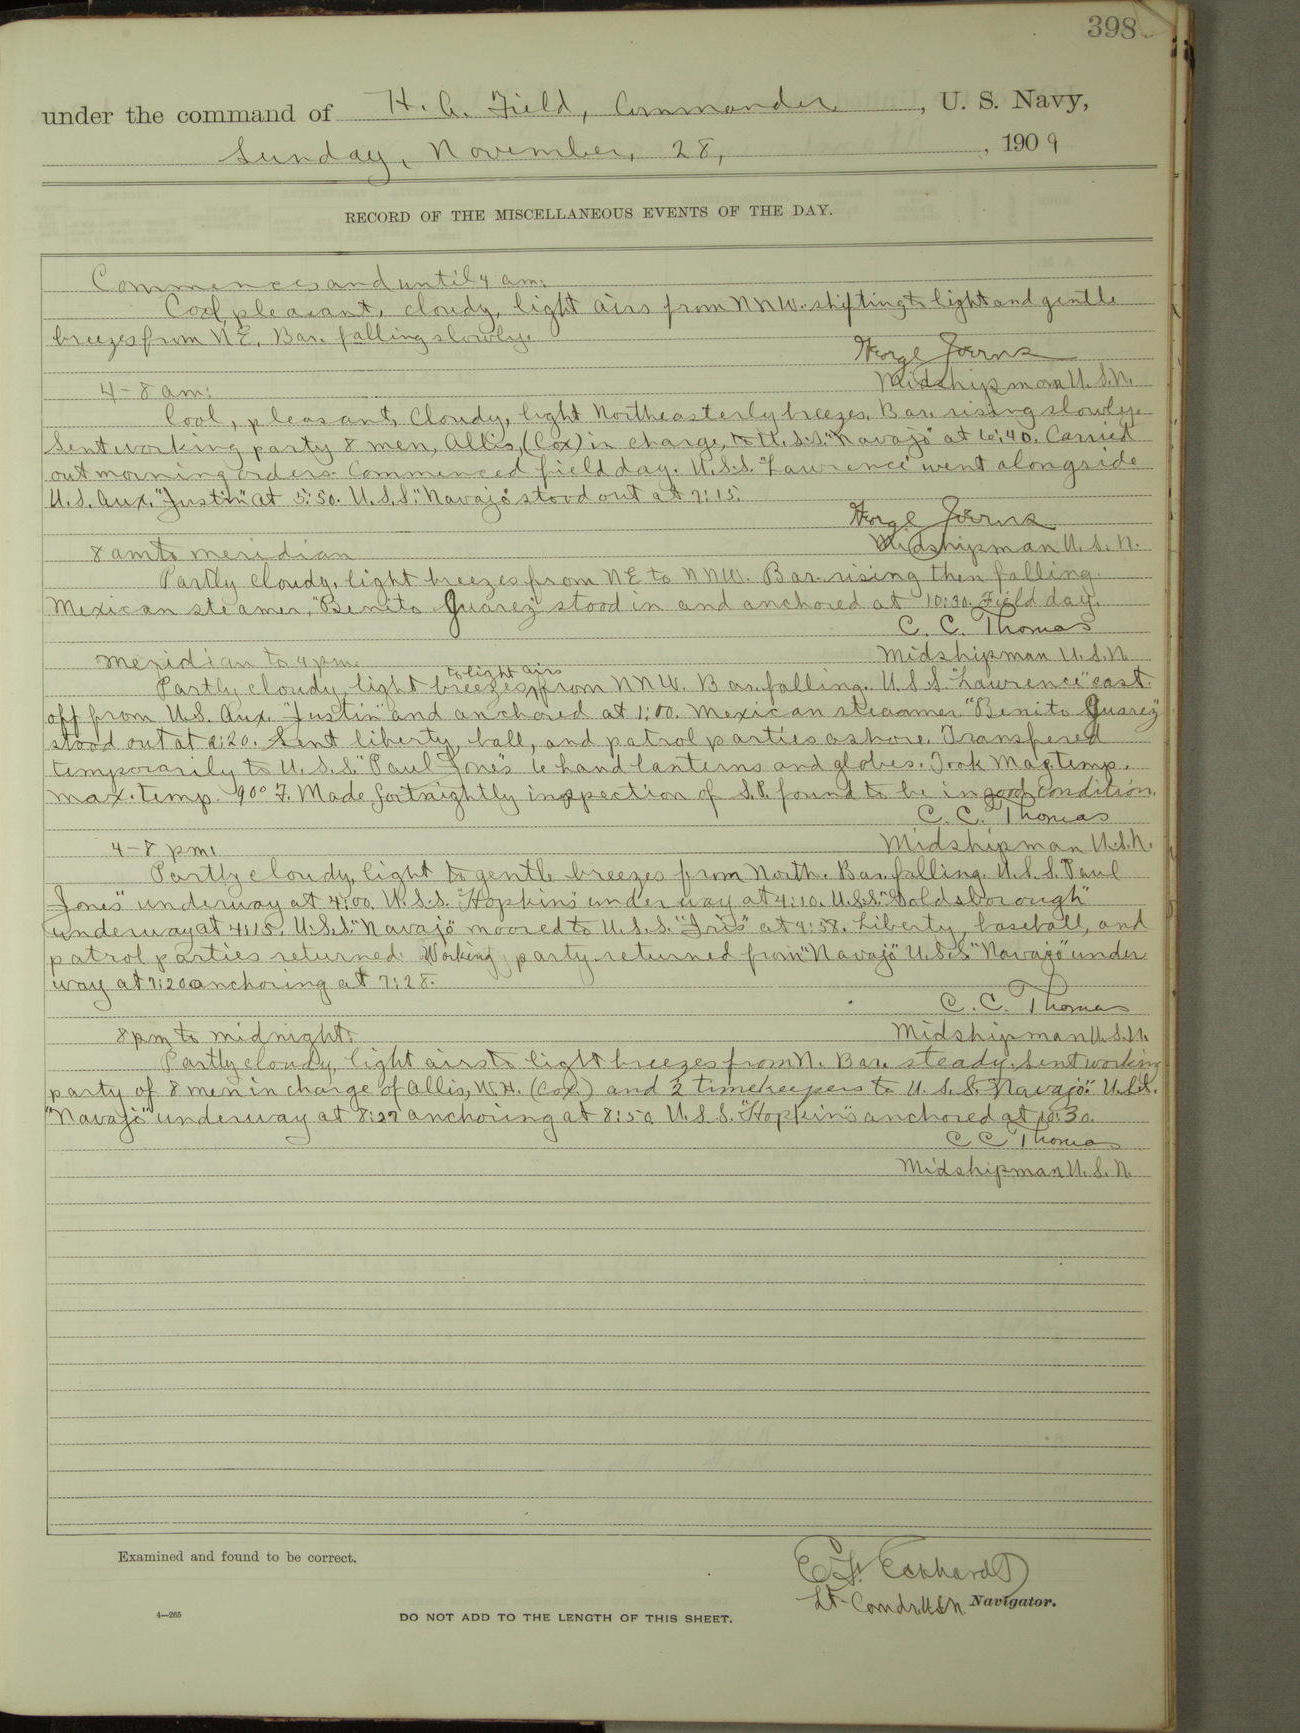 398
under the command of H. A. Field, Commander, U. S. Navy,
Sunday, November, 28, , 1909
RECORD OF THE MISCELLANEOUS EVENTS OF THE DAY.
Commences and until 4 am:
Cool, pleasant, cloudy, light airs from NNW. shifting to light and gentle
breezes from NE. Bar. falling slowly.
George Joerns
Midshipman U.S.N.
4-8 am:
Cool, pleasant, Cloudy, light Northeasterly breezes. Bar. rising slowly.
Sent working party 8 men, Allis, (Cox) in charge, to U.S.S. "Navajo" at 6:40. Carried
out morning orders. Commenced field day. U.S.S. "Lawrence" went alongside
U.S. Aux. "Justin" at 5:50. U.S.S. "Navajo" stood out at 7:15.
George Joerns
Midshipman U.S.N.
8 am to meridian
Partly cloudy, light breezes from NE to NNW. Bar. rising then falling.
Mexican steamer, "Benito Juarez" stood in and anchored at 10:30. Field day.
C. C. Thomas
Midshipman U.S.N.
Meridian to 4 pm.
Partly cloudy, light breezes to light airs from NNW. Bar. falling. U.S.S. "Lawrence" cast
off from U.S. Aux. "Justin" and anchored at 1:00. Mexican steamer "Benito Juarez"
stood out at 2:20. Sent liberty, ball, and patrol parties ashore. Transfered
temporarily to U.S.S. "Paul Jones" 6 hand lanterns and globes. Took Mag. temp.
max. temp. 90° F. Made fortnightly inspection of S.P. found to be in good condition.
C. C. Thomas
Midshipman U.S.N.
4-8 pm:
Partly cloudy, light to gentle breezes from North. Bar. falling. U.S.S. "Paul
Jones" underway at 4:00. U.S.S. "Hopkins" underway at 4:10. U.S.S. "Goldsborough"
underway at 4:15. U.S.S. "Navajo" moored to U.S.S. "Iris" at 4:58. Liberty, baseball, and
patrol parties returned. Working party returned from "Navajo" U.S.S. "Navajo" under
way at 7:20 anchoring at 7:28.
C. C. Thomas
Midshipman U.S.N.
8 pm to midnight:
Partly cloudy, light airs to light breezes from N. Bar. steady. Sent working
party of 8 men in charge of Allis, W.H. (Cox.) and 2 timekeepers to U.S.S. "Navajo." U.S.S.
"Navajo" underway at 8:27 anchoring at 8:50. U.S.S. "Hopkins" anchored at 10:30.
C C Thomas
Midshipman U.S.N.
Examined and found to be correct.
E. F. Eckhardt
Lt-Comdr. USN Navigator.
4—265
DO NOT ADD TO THE LENGTH OF THIS SHEET.